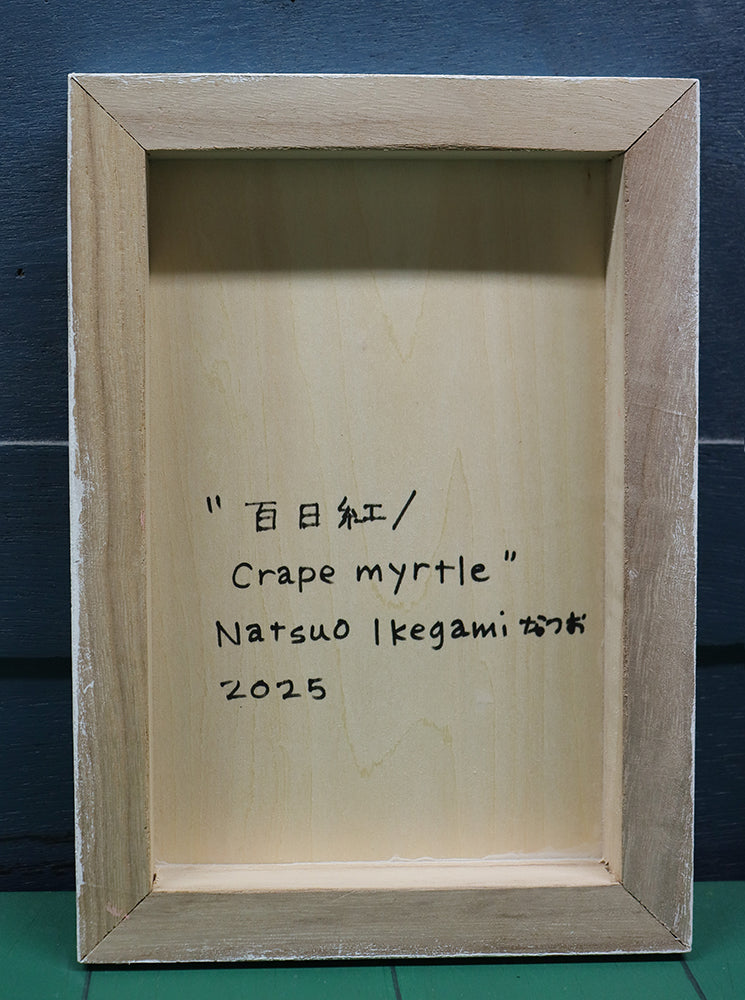 "百日紅/
Crape myrtle"
Natsuo Ikegami なつお
2025